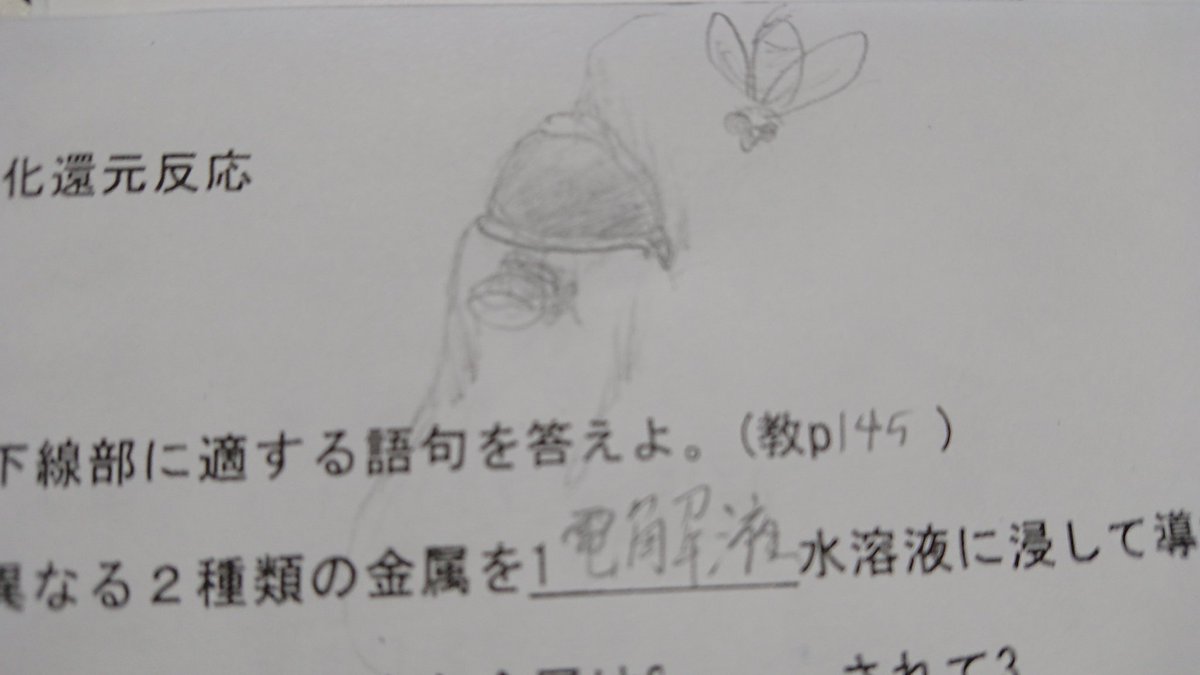 化還元反応
下線部に適する語句を答えよ。(教p145 )
異なる2種類の金属を1 電解液 水溶液に浸して導
されて3